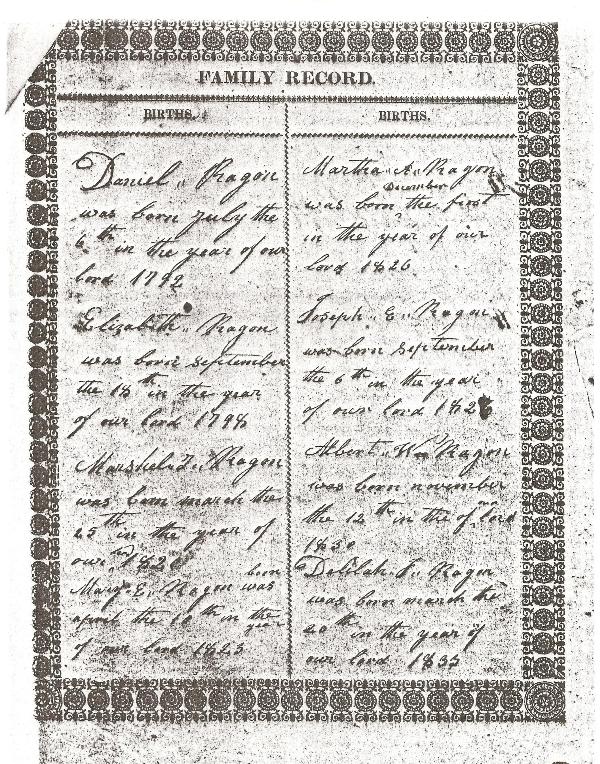 FAMILY RECORD.
BIRTHS.
Daniel Ragon
was born july the
6th in the year of our
lord 1792
Elizabeth Ragon
was born september
the 18th in the year
of our lord 1798
Ragon
was born march the
25th in the year of
our 1820
born
Mary E. Ragon was
april the 10th in the
year
of our lord 1823
BIRTHS.
Martha A. Ragon
December
was born the first
in the year of our
lord 1826
Joseph E. Ragon
was born september
the 6th in the year
of our lord 1828
Albert Wm Ragon
was born november
our
the 12th in the of lord
1830
Delilah Ragon
was born march the
20th in the year of
our lord 1835